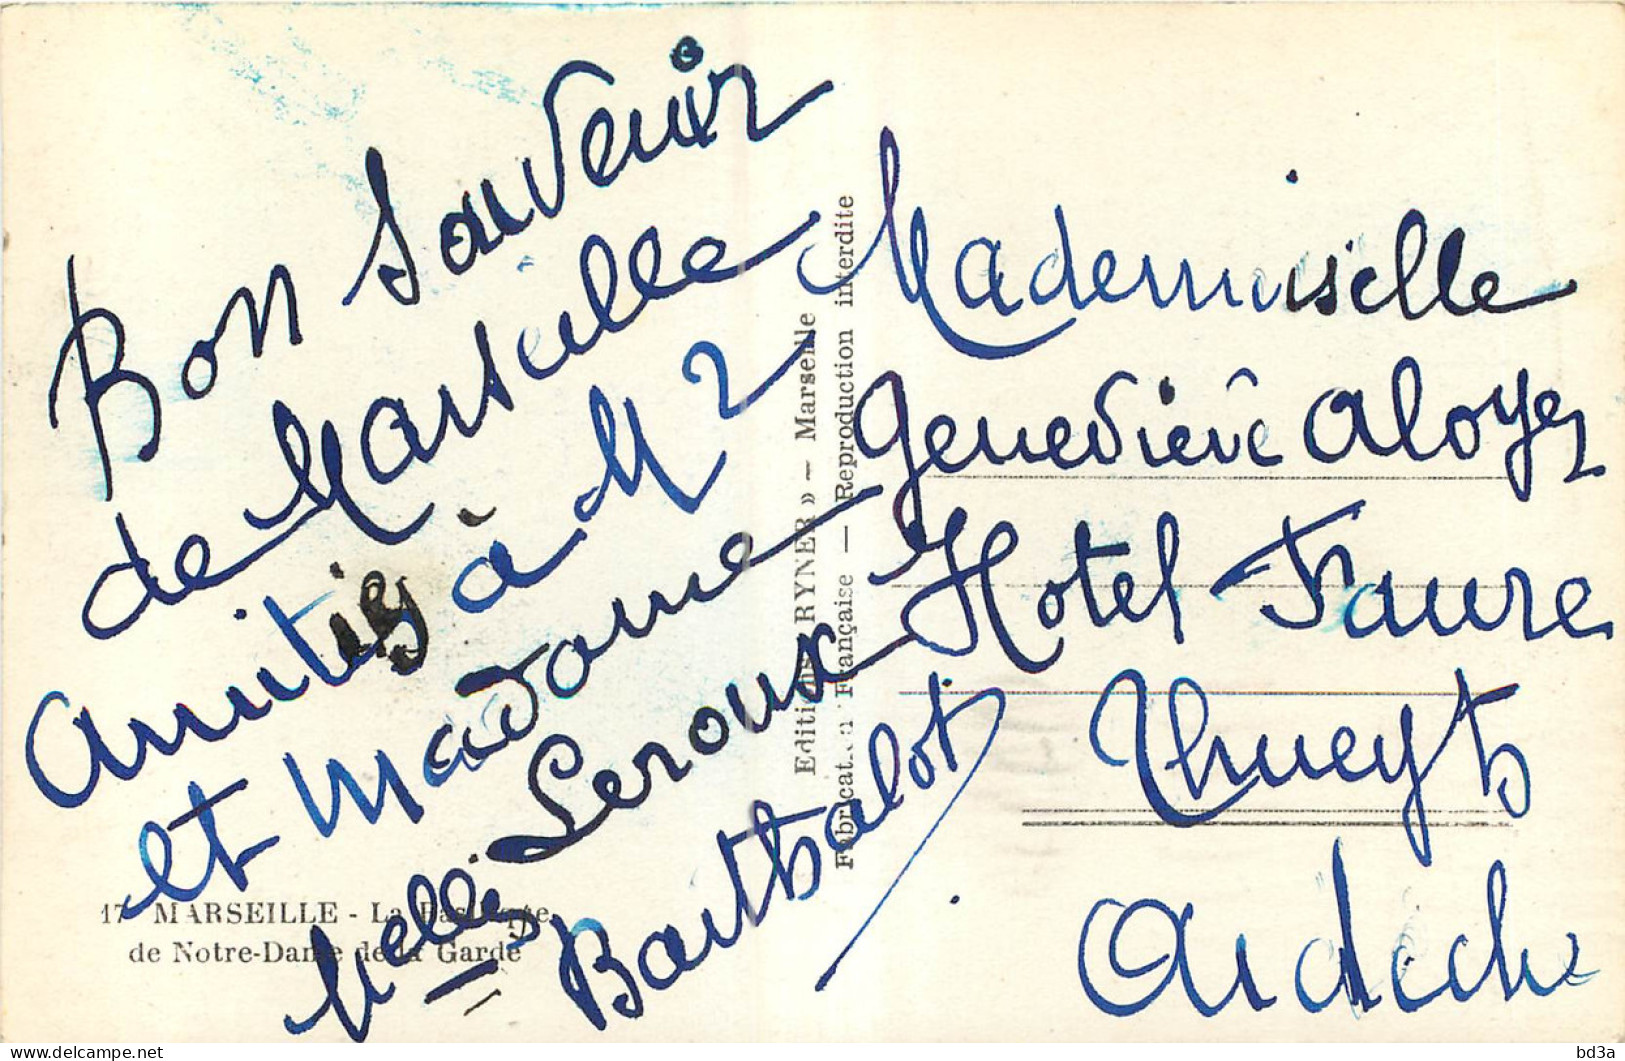 Bon Souvenir
de Marseille
Amitiés à Mr
et Madame
Melles Leroux
Barthalot
Mademoiselle
Geneviève Aloyer
Hotel Faure
Thueyts
Ardèche
Editions « RYNER » — Marseille
Fabrication Française — Reproduction interdite
17 MARSEILLE - La Basilique
de Notre-Dame de la Garde
bd3a